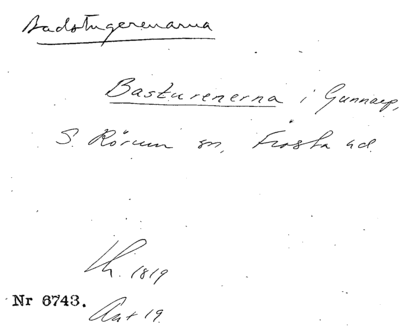 Badstugerenarna
Basturenerna i Gunnarp,
S. Rörum sn, Frosta hd.
Lh. 1819
Nr 6743.
Ant 19.